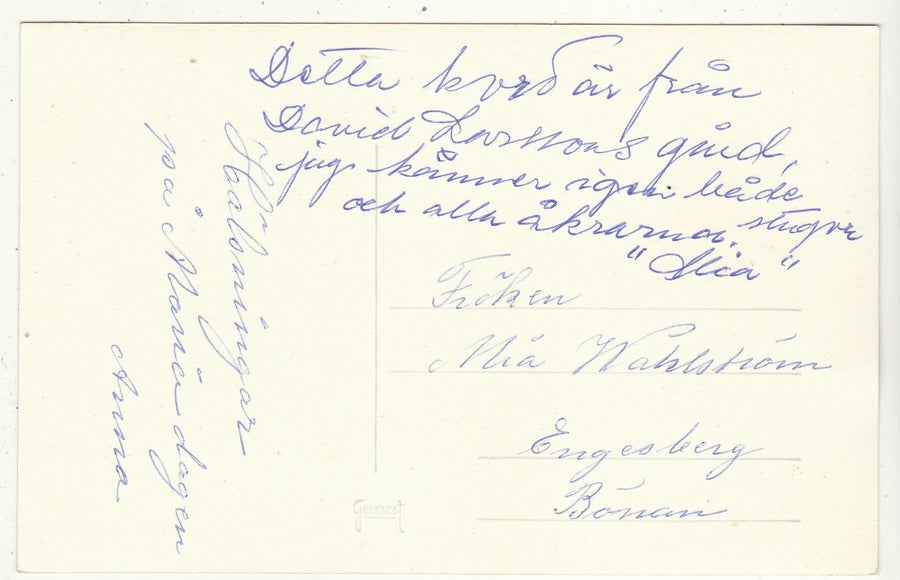 Detta kord är från
David Larssons gård,
jag känner igen både stugor
och alla åkrarna.
"Mia"
Hälsningar
på Mariadagen
Anna
Fröken
Mia Wahlström
Engesberg
Bönan
Gevaert